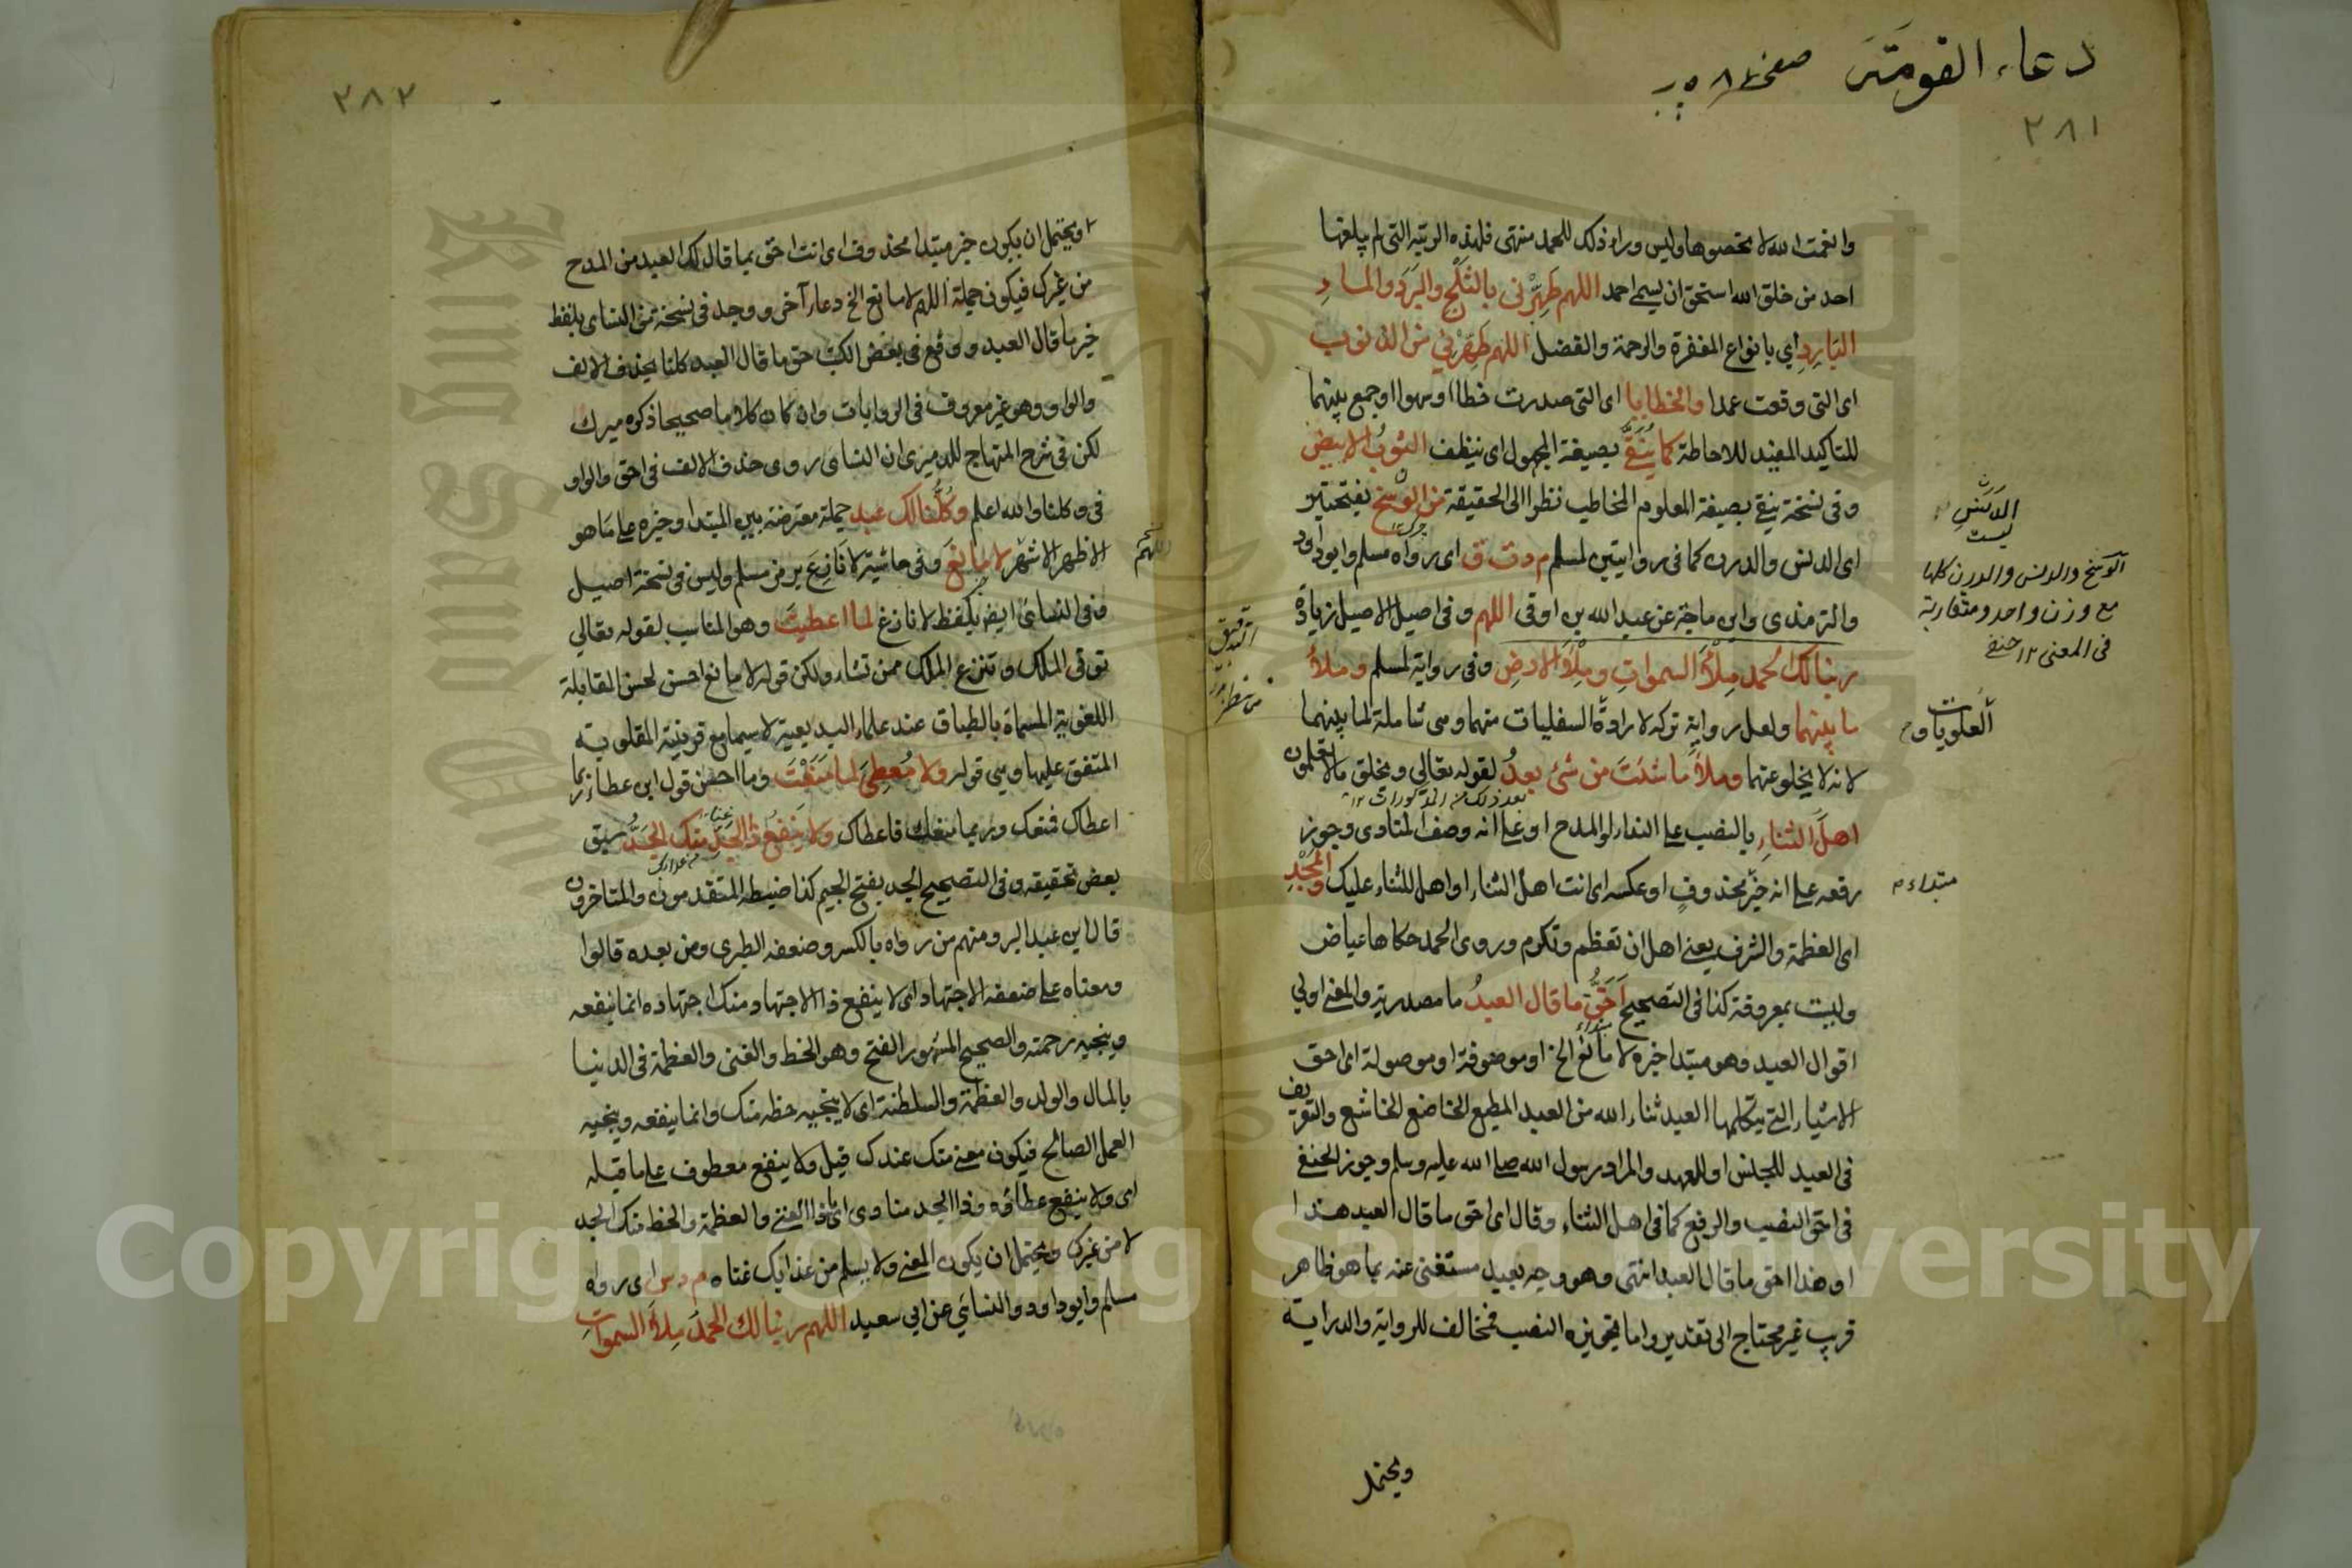 دعاء القومة صفحة
٢٨١
وان نعمت الله لا تحصوها وليس وراء ذلك للحمد منتهى فلهذه الرتبة التي لم يبلغها
احد من خلق الله استحق ان يسمى احمد اللهم طَهِّرْني بالثَلْجِ والبَرَدِ والماءِ
البَارِدِ اي بانواع المغفرة والرحمة والفضل اللهم طَهِّرْني من الذنوب
اى التى وقعت عمدا والخطايا اى التى صدرت خطاا وسهوا او جمع بينهما
للتاكيد المفيد للاحاطة كما يُنَقَّى بصيغة المجهول اى ينظف الثوبُ الابيض
وفى نسخة ينقى بصيغة المعلوم المخاطب نظرا الى الحقيقة من الوسخ بفتحتين
اى الدنس والدرن كما فى روايتين لمسلم م د ت ق اى رواه مسلم وابوداود
والترمذى وابن ماجة عن عبد الله بن اوفى اللهم وفى اصيل الاصيل زيادة
ربنا لك الحمد مِلْأَ السموات ومِلْأَ الارض وفى رواية لمسلم وملأ
ما بينهما ولعل رواية تركه لارادة السفليات منهما وهى شاملة لما بينهما
لانه لا يخلو عنهما وملأ ما شئتَ من شئ بعدُ لقوله تعالى ويخلق مالا تعلمون
بعد ذلك من المذكورات ١٢
اهلَ الثناءِ بالنصب على النداء او المدح او على انه وصف المنادى وجوز
رفعه على انه خبر محذوفٍ او عكسه اى انت اهل الثناء او اهل للثناء عليك والمَجْدِ
اى العظمة والشرف يعنى اهل ان تعظم وتكرم وروى الحمد حكاها عياض
وليست بمعروفة كذا فى التصحيح اَحَقُّ ما قال العبدُ ما مصدرية والمعنى اولى
اقوال العبد وهو مبتدا خبره لا مانع الخ او موصوفة او موصولة اى احق
الاشياء التى يتكلمها العبد ثناء الله من العبد المطيع الخاضع الخاشع والتعريف
فى العبد للجنس او للعهد والمراد رسول الله صلى الله عليه وسلم وجوز الحنفى
فى احق النصب والرفع كما فى اهل الثناء وقال اى احق ما قال العبد هذا
او هذا احق ما قال العبد انتهى وهو وجه بعيد مستغنى عنه بما هو ظاهر
قريب غير محتاج الى تقدير واما تجويزه النصب فمخالف للرواية والدراية
ويحتمل
الدَنَسِ
الوسخ والدنس والدرن كلها
مع وزن واحد ومتقاربة
فى المعنى ١٢ حنفى
العلويات و
مبتداء م
٢٨٢
او يحتمل ان يكون خبر مبتدا محذوف اى انت احق بما قال لك العبد من المدح
من غيرك فيكون جملة اللهم لا مانع الخ دعاء آخر ووجد فى نسخة من النساى بلفظ
خير ما قال العبد ووقع فى بعض الكتب حق ما قال العبد كلنا بحذف الالف
والواو وهو غير معروف فى الروايات وان كان كلاما صحيحا ذكره ميرك
لكن فى شرح المنهاج للدميرى ان النساى روى حذف الالف فى احق والواو
فى وكلنا والله اعلم وكُلُّنَا لك عبد جملة معترضة بين المبتدا وخبره على ما هو
الاظهر الاشهر لا مانعَ وفى حاشية لا نَازِعَ برمز مسلم وليس فى نسخة اصيل
وفى النسائى ايض بلفظ لا نازع لما اعطيتَ وهو المناسب لقوله تعالى
توتى الملك وتنزع الملك ممن تشاء ولكن قوله لا مانع احسن لحسن المقابلة
اللغوية المسماة بالطباق عند علماء البديعية لا سيما مع قرينة المقلوبة
المتفق عليها وهى قوله ولا مُعطِىَ لما مَنَعْتَ وما احسن قول ابن عطاء ربما
اعطاك فمنعك وربما منعك فاعطاك ولا يَنفعُ ذَا الجَدِّ منك الجَدُّ سبق
بعض تحقيقه وفى التصحيح الجد بفتح الجيم كذا ضبطه المتقدمون والمتاخرون
قال ابن عبد البر ومنهم من رواه بالكسر وضعفه الطبرى ومن بعده قالوا
ومعناه على ضعفه الاجتهاد اى لا ينفع ذا الاجتهاد منك اجتهاده انما ينفعه
وينجيه رحمته والصحيح المشهور الفتح وهو الحظ والغنى والعظمة فى الدنيا
بالمال والولد والعظمة والسلطنة اى لا ينجيه حظه منك وانما ينفعه وينجيه
العمل الصالح فيكون معنى منك عندك قيل ولا ينفع معطوف على ما قبله
اى ولا ينفع عطاؤه وذا الجد منادى اى يا ذا الغنى والعظمة والحظ منك الجد
لا من غيرك ويحتمل ان يكون المعنى ولا يسلم من عذابك غناه م د س اى رواه
مسلم وابوداود والنسائى عن ابى سعيد اللهم ربنا لك الحمدَ مِلأَ السموات
اللهم
Copyright © King Saud University
King Saud Un
1957